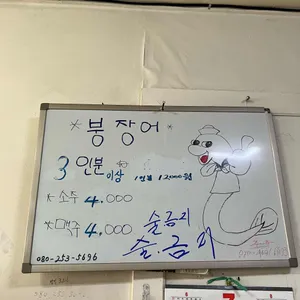 * 붕장어 *
3인분 이상 1인분 12,000원
* 소주 4.000
* 맥주 4.000
술.금지
술.금지
080-253-5696